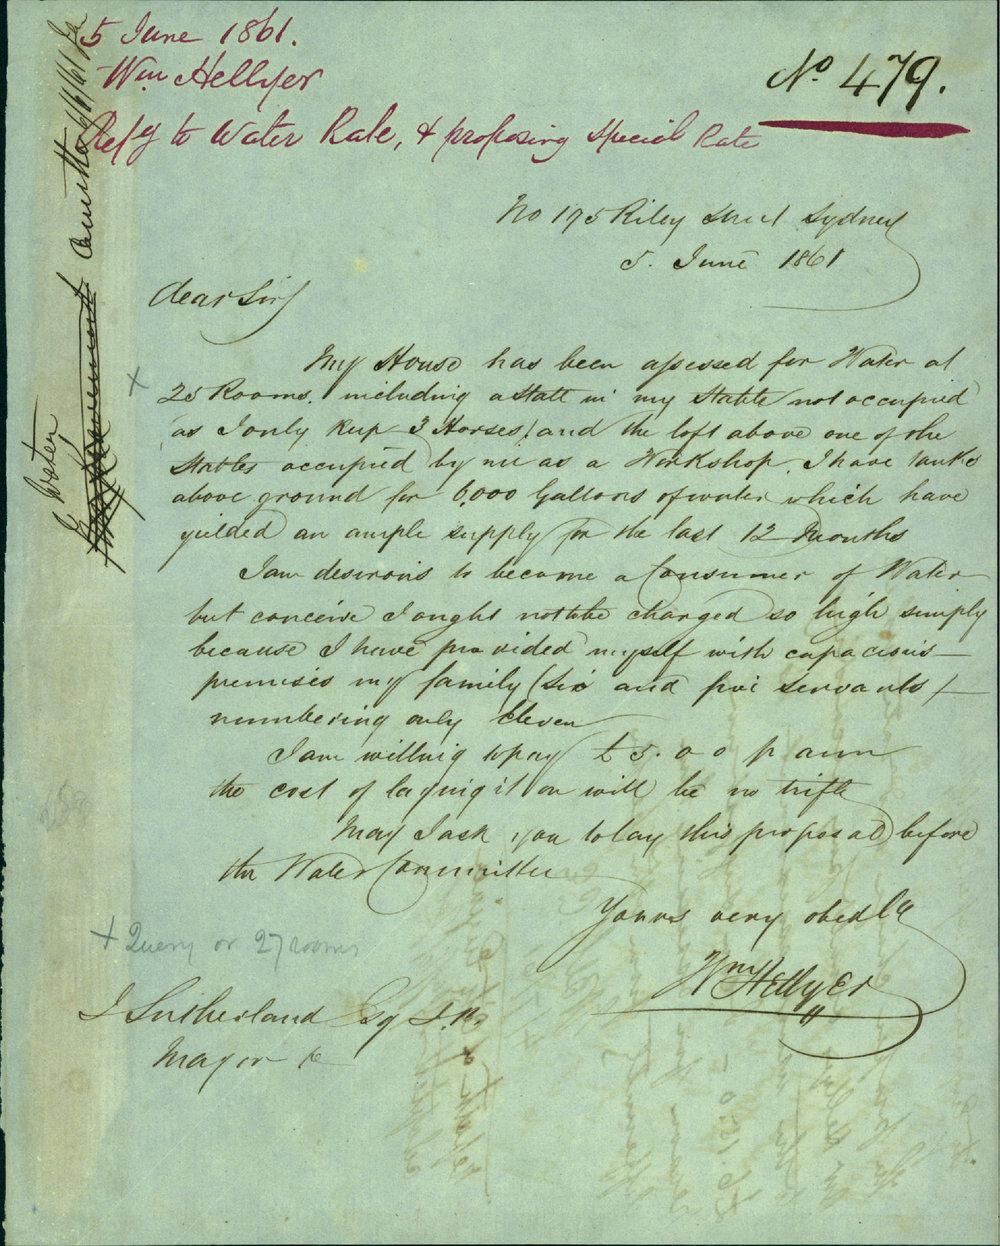 5 June 1861.
Wm Hellyer
Refg to Water Rate, & proposing special Rate
No 479.
No 195 Riley Street Sydney
5. June 1861
Dear Sir/
My House has been assessed for Water at
25 Rooms. including a stall in my Stable not occupied
as I only keep 3 Horses/. and the loft above one of the
Stables occupied by me as a Workshop. I have tanks
above ground for 6,000 Gallons of water which have
yielded an ample supply for the last 12 Months
I am desirous to become a Consumer of Water
but conceive I ought not to be charged so high simply
because I have provided myself with capacious
premises my family (six and five servants)
numbering only Eleven
I am willing to pay £5.0 0 p ann
the cost of laying it on will be no trifle
May I ask you to lay this proposal before
the Water Committee
Yours very obedly
Wm Hellyer
+ Query or 27 rooms
J Sutherland Esq J.P.
Mayor &c
Water
6/6/61